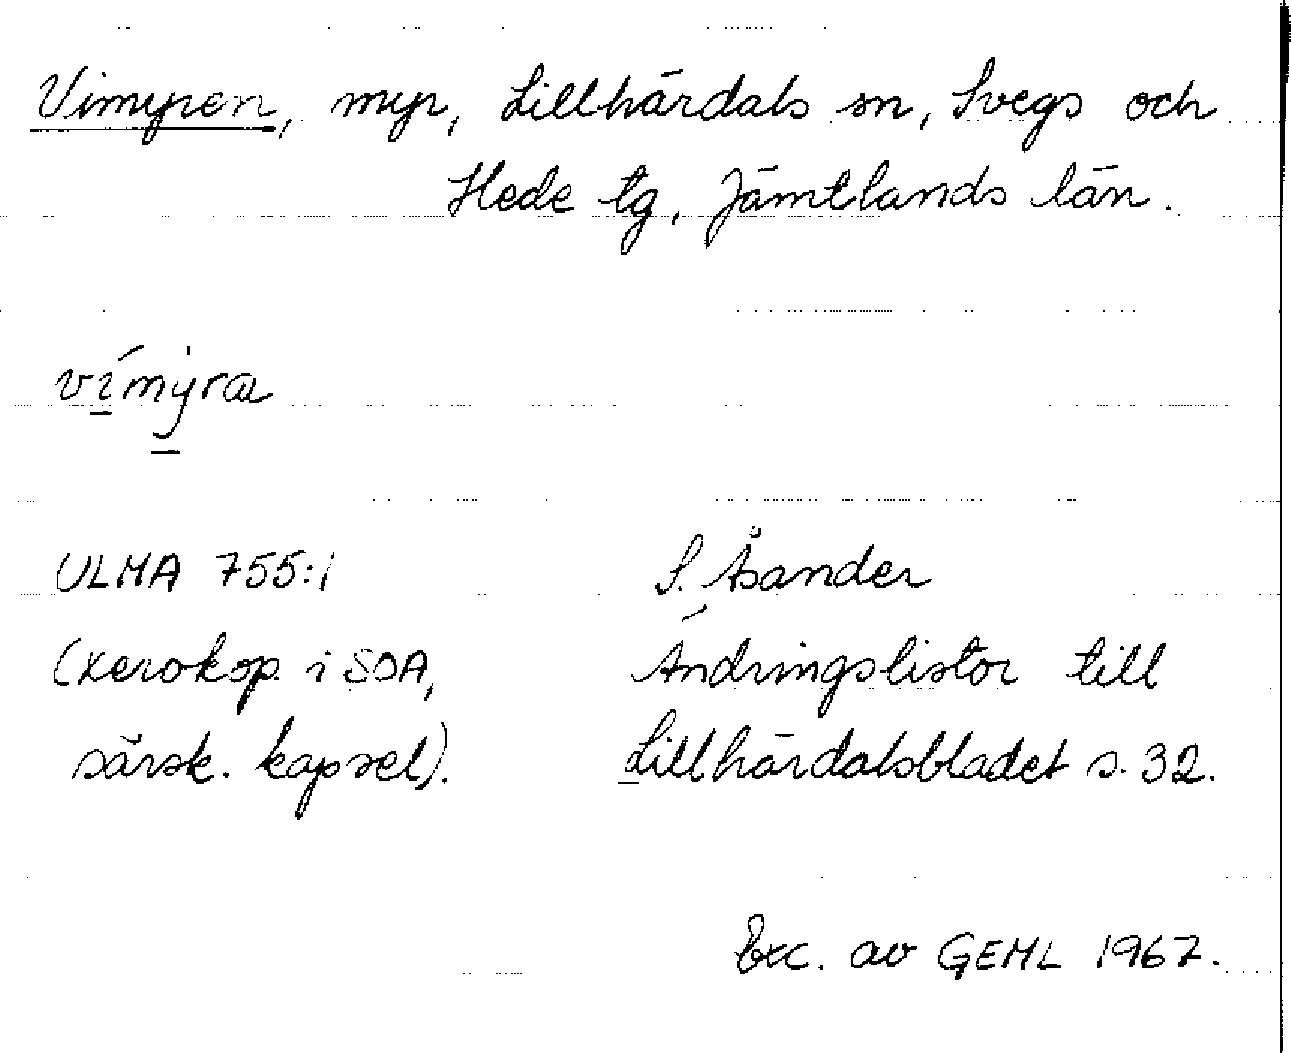 Vimyren, myr, Lillhärdals sn, Svegs och
Hede tg, Jämtlands län.
vímýra
ULMA 755:1 S. Åsander
(Xerokop. i SOA, Ändringslistor till
särsk. kapsel). Lillhärdalsbladet s. 32.
Exc. av GEML 1967.